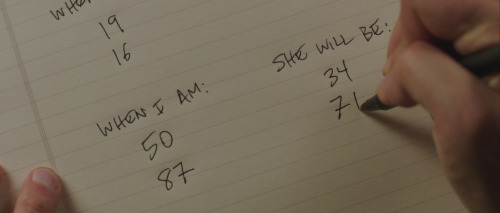 WHE
19
16
WHEN I AM:
50
87
SHE WILL BE:
34
71